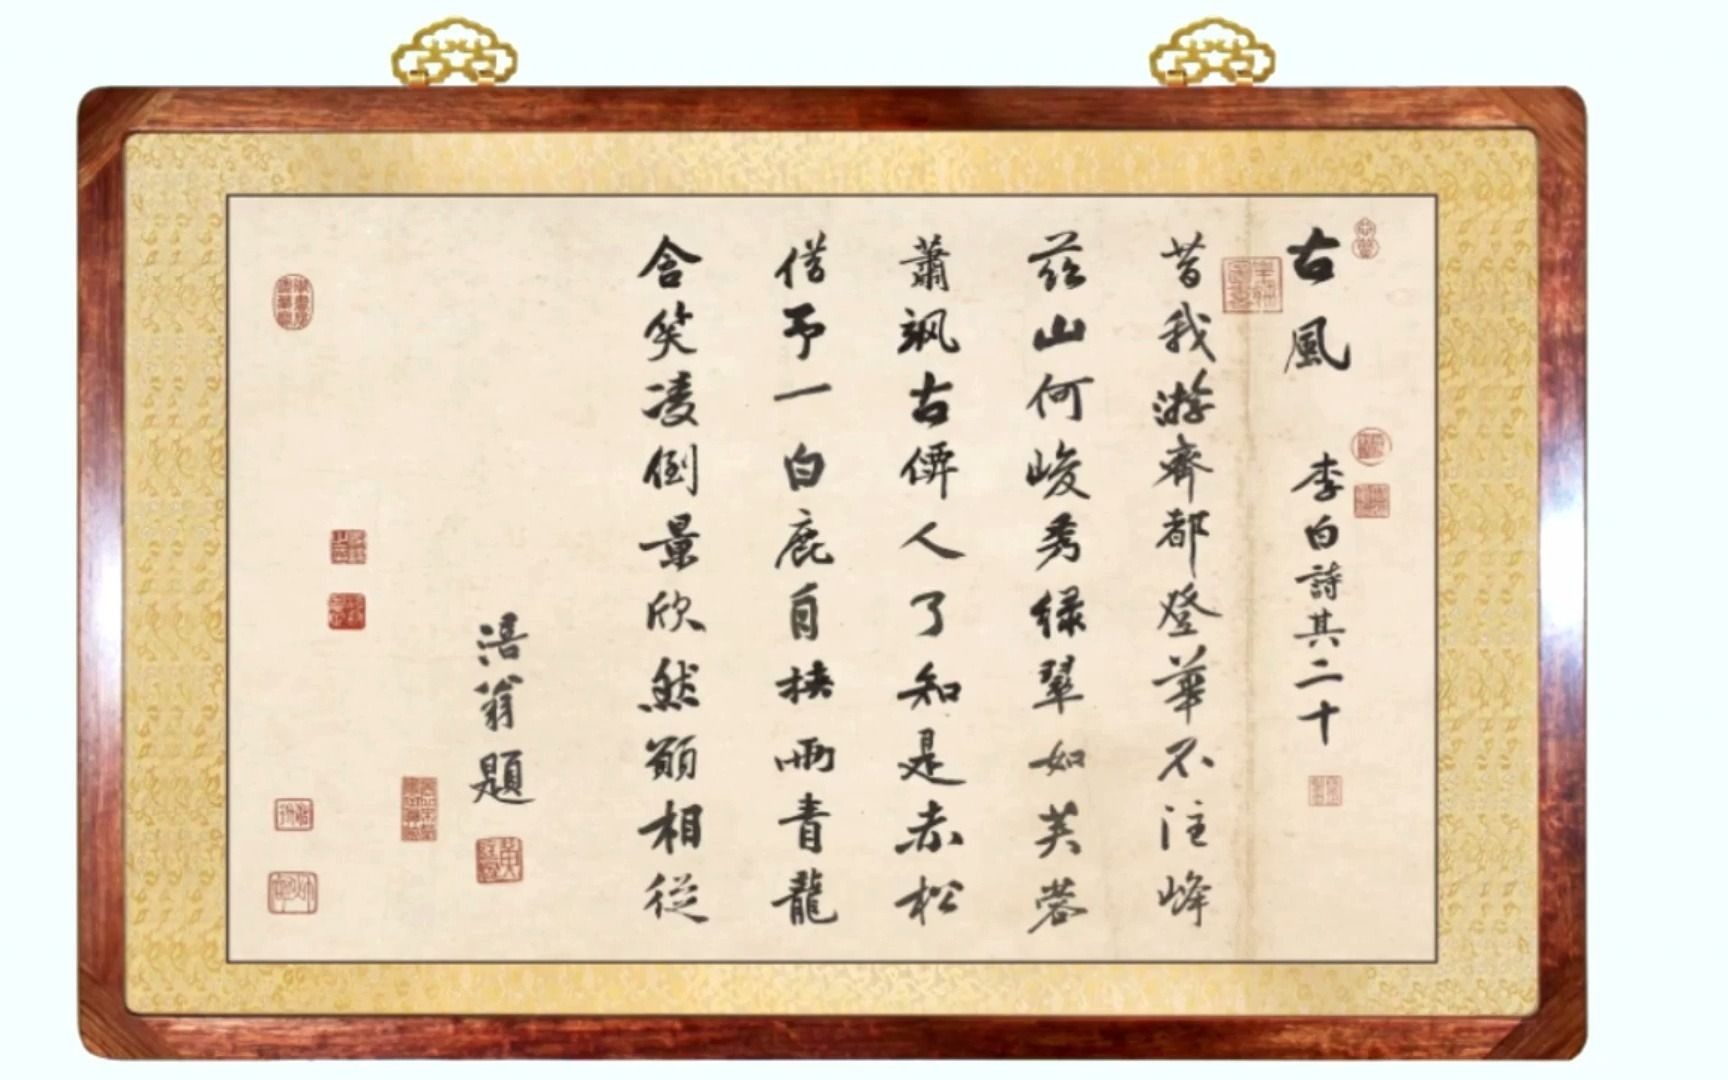 古風 李白詩其二十
昔我游齊都登華不注峰
茲山何峻秀綠翠如芙蓉
蕭颯古僊人了知是赤松
借予一白鹿自挾兩青龍
含笑凌倒景欣然願相從
涪翁題